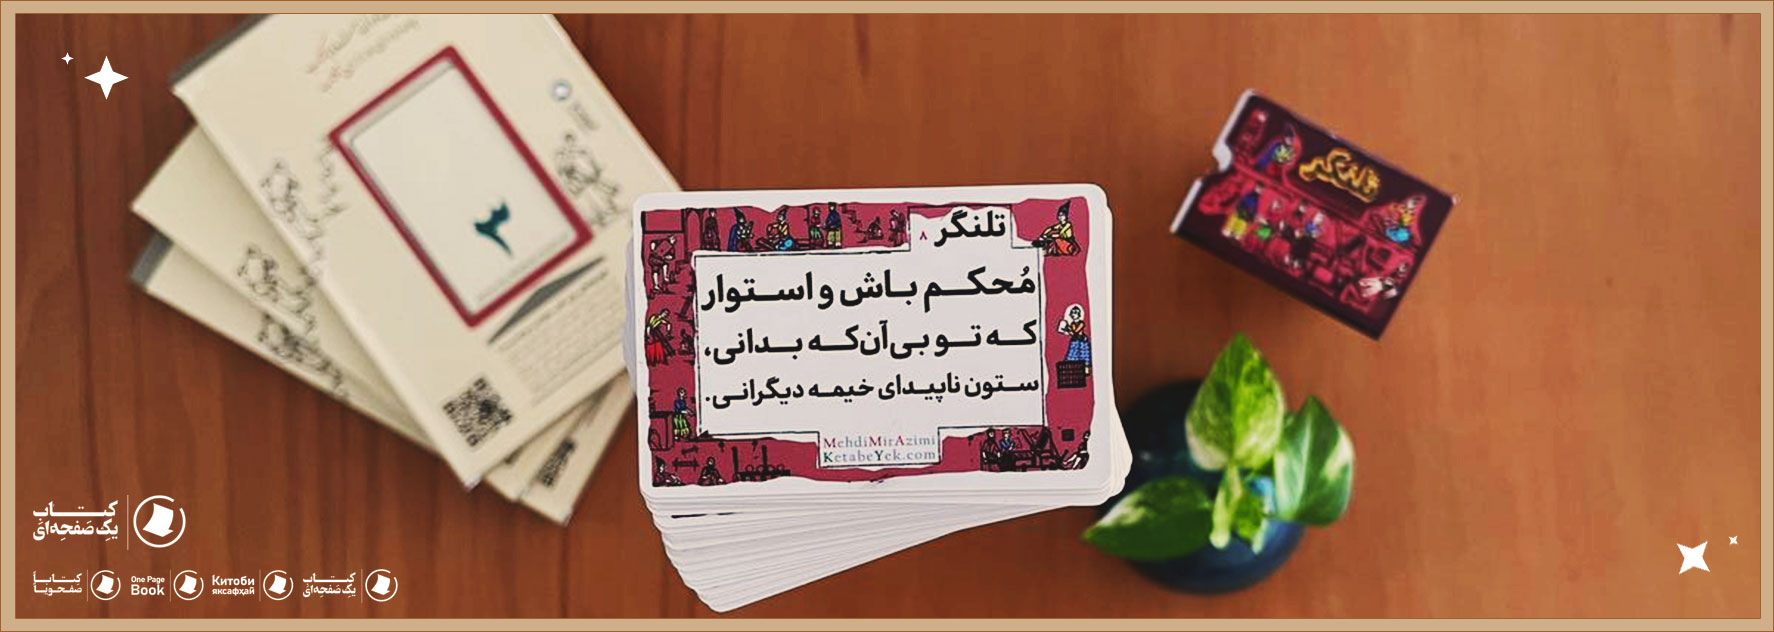 تلنگر ۸
مُحکم باش و استوار
که تو بی‌آن‌که بدانی،
ستون ناپیدای خیمه دیگرانی.
MehdiMirAzimi
KetabeYek.com
تلنگر
۳
کتاب
یک صَفحِه‌ای
کتاب
یک صَفحِه‌ای
Китоби
яксафҳаӣ
One Page
Book